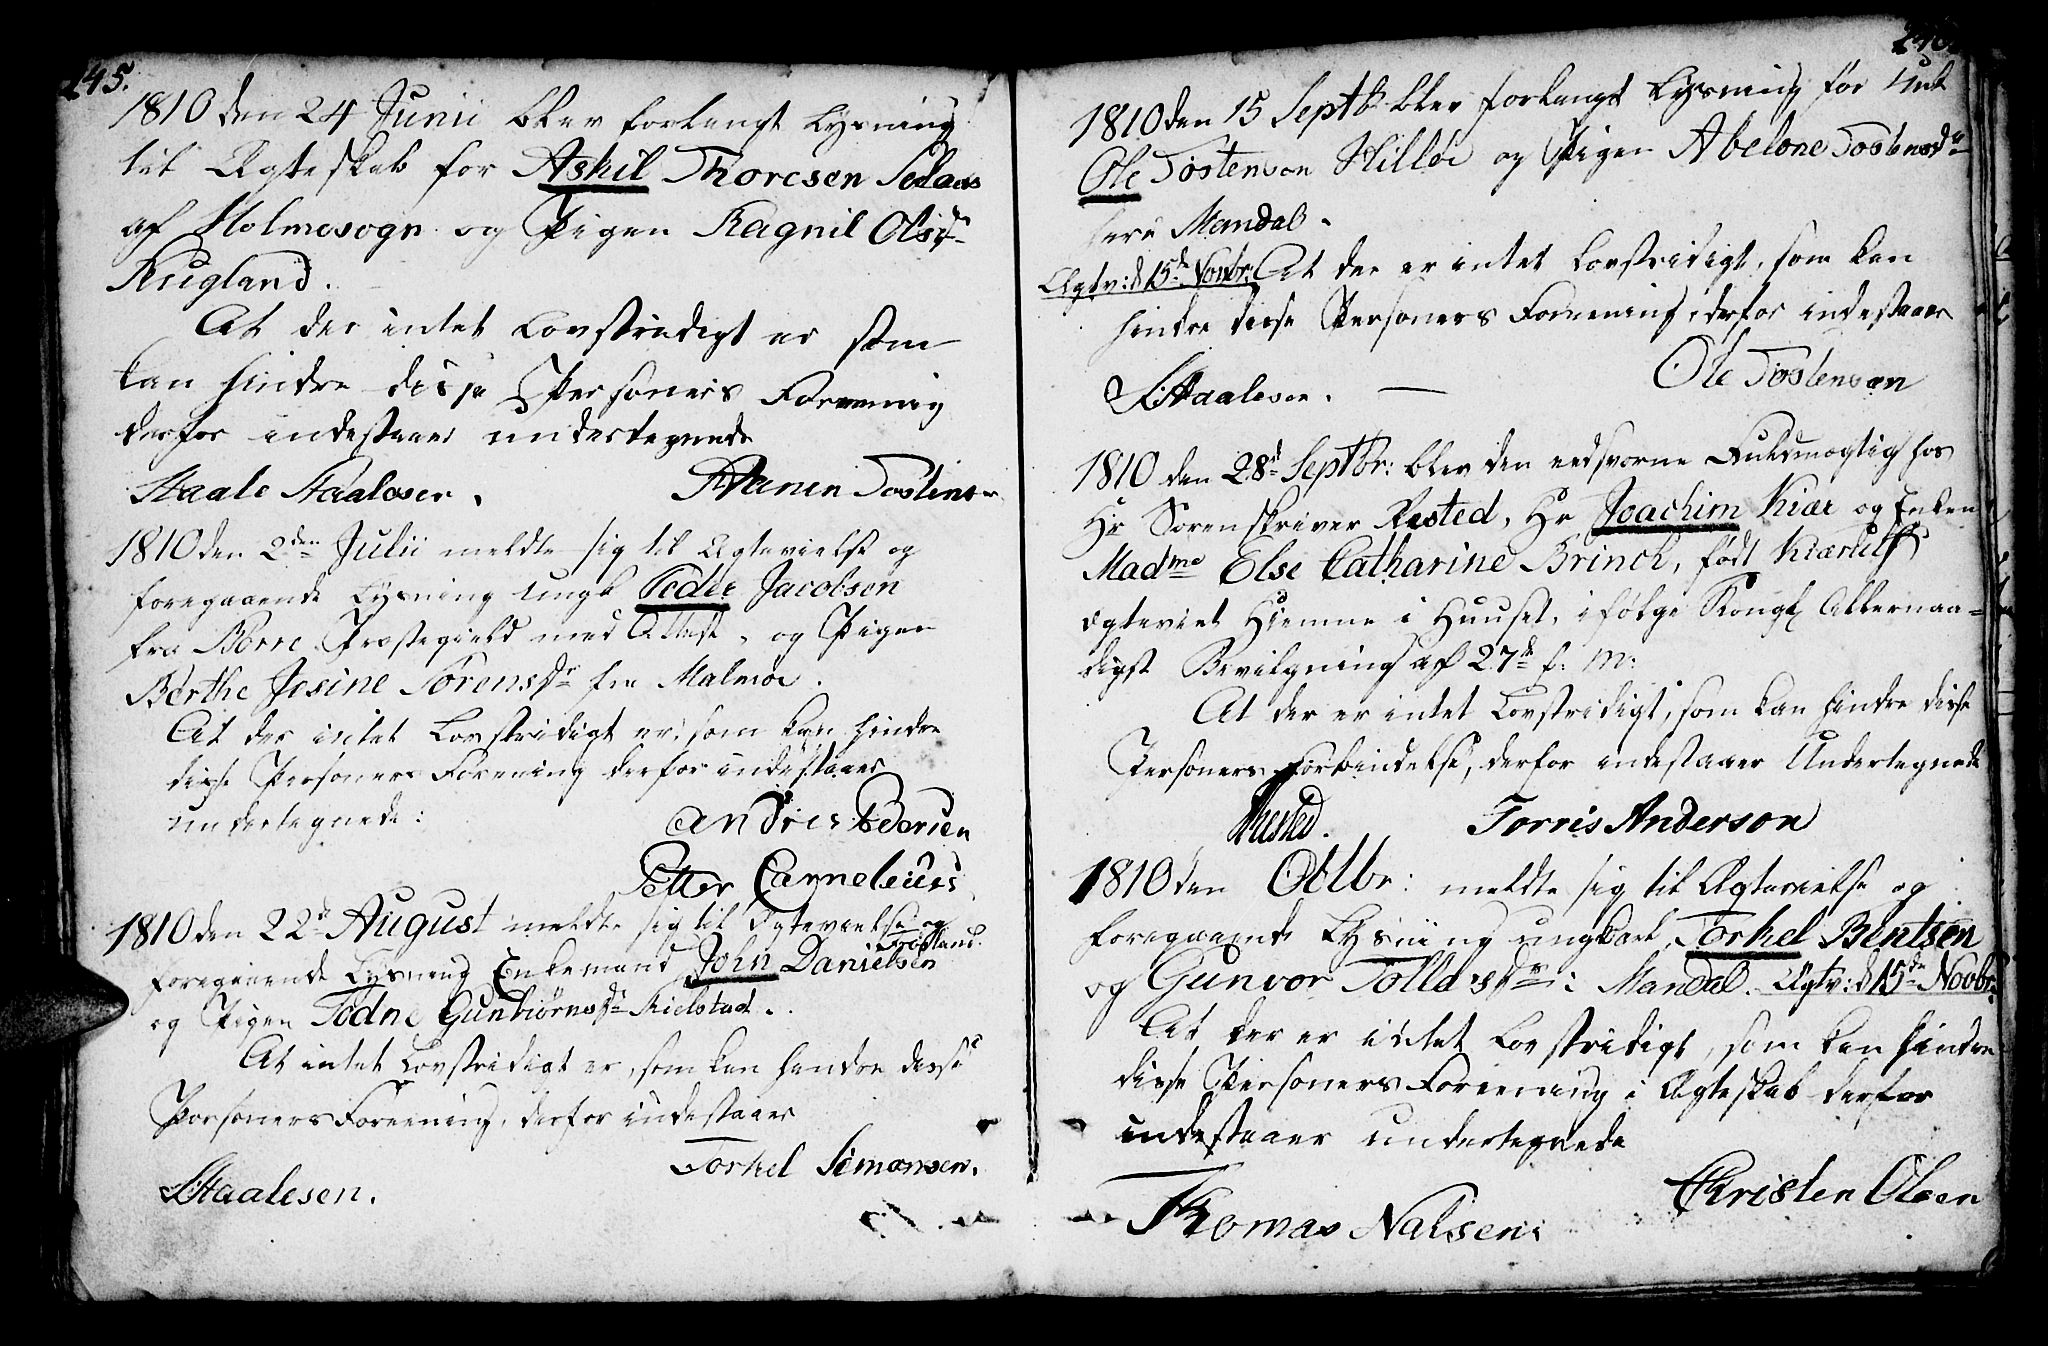 245.
1810 den 24 Junii blev forlangt Lysning
til Ægteskab for Askil Thoresen
af Holmesogn og Pigen Ragnil Olsdr
Rugland.
At der intet Lovstridigt er som
kan hindre disse Personers Forening
derfor indestaaer undertegnede
Staale Staalesen. Tostensen
1810 den 2den Julii meldte sig til Ægtevielse og
foregaaende Lysning Ungk Peder Jacobsen
fra Borre Præstegield med Attest, og Pigen
Berthe Jesine Sørensdr fra Malmøe.
At der intet Lovstridigt er, som kan hindre
disse Personers Forening derfor indestaaer
undertegnede:
Andres Pedersen
Petter Carneleius
1810 den 22de August meldte sig til Ægtevielse og
foregaaende Lysning Enkemand John Danielsen Frøsland.
og Pigen Todne Gunbiørnsdr Kielstad.
At intet Lovstridigt er, som kan hindre disse
Personers Foreening, derfor indestaaer
Torkel Simonsen.
S. Staalesen.
246.
1810 den 15 Septbr blev forlangt Lysning for Unk
Ole Tostensen Hilløe og Pigen Abelone Tostensdr
Mandal.
Ægtv: d 15de Novbr. At der er intet Lovstridigt, som kan
hindre disse Personers Foreening, derfor indestaaer
Ole Tostensen
S. Staalesen.
1810 den 28de Septbr: blev den eedsvorne Fuldmægtig hos
Hr Sorenskriver Rested, Hr Joachim Kiær og Enken
Madme Else Catharine Brinch, født Kiærulf,
ægteviet Hiemme i Huuset, i følge Kongl Allernaa-
digst Bevilgning af 27de f: M:
At der er intet Lovstridigt, som kan hindre disse
Personers Forbindelse, derfor indestaaer Undertegnede
Rested. Torris Anderson
1810 den Octbr: meldte sig til Ægtevielse og
foregaaende Lysning ungkarl Torkel Bentsen
og Gunvor Tolldsdr: Mandal. Ægtv: d 15de Novbr:
At der er intet Lovstridigt, som kan hindre
disse Personers Foreening i Ægteskab derfor
indestaaer undertegnede
Christen Olsen
Thomas Nalsen